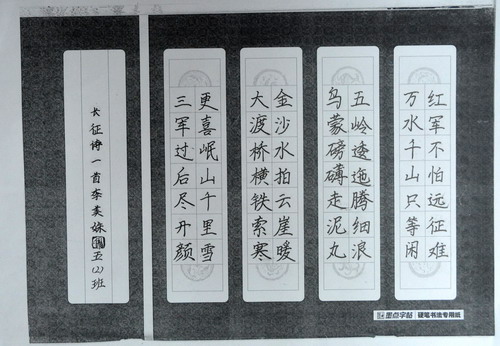 红军不怕远征难
万水千山只等闲
五岭逶迤腾细浪
乌蒙磅礴走泥丸
金沙水拍云崖暖
大渡桥横铁索寒
更喜岷山千里雪
三军过后尽开颜
长征诗一首李美 五(2)班
墨点字帖 硬笔书法专用纸